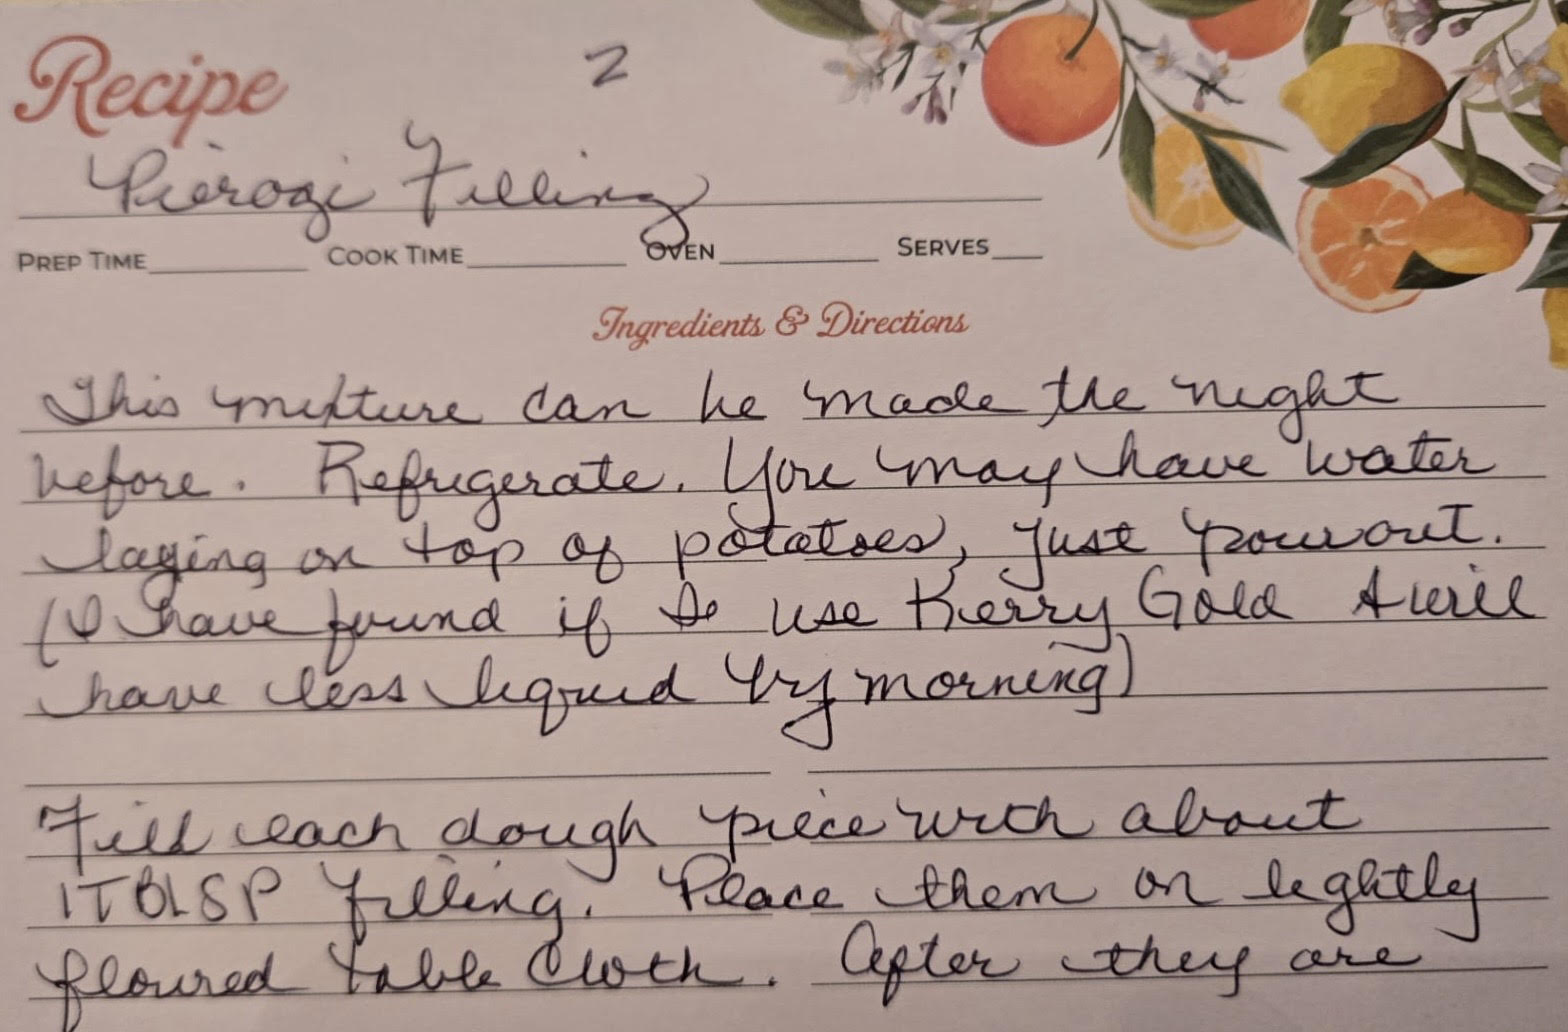 Recipe 2
Pierogi Filling
PREP TIME COOK TIME OVEN SERVES
Ingredients & Directions
This mixture can be made the night
before. Refrigerate. You may have water
laying on top of potatoes, just pour out.
(I have found if I use Kerry Gold I will
have less liquid by morning)
Fill each dough piece with about
1 TBLSP filling. Place them on lightly
floured table cloth. After they are